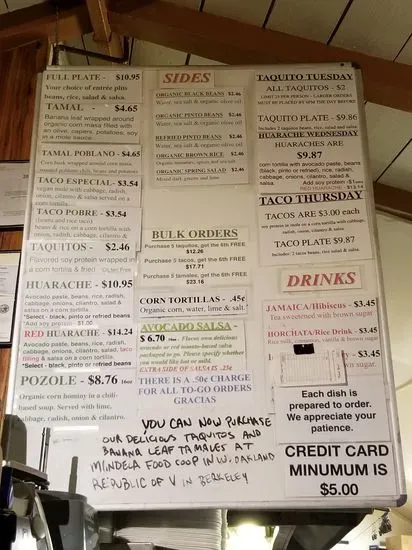 FULL PLATE - $10.95
Your choice of entrée plus
beans, rice, salad & salsa.
TAMAL - $4.65
Banana leaf wrapped around
organic corn masa filled with
an olive, capers, potatoes, soy
in a mole sauce
TAMAL POBLANO - $4.65
Corn husk wrapped around corn masa,
roasted poblano chili, beans and potatoes
TACO ESPECIAL - $3.54
vegan mole with cabbage, radish,
onion, cilantro & salsa served on a
corn tortilla
TACO POBRE - $3.54
(beans and rice taco)
beans & rice on a corn tortilla with
onion, radish, cabbage, cilantro &
TAQUITOS - $2.46
Flavored soy protein wrapped in
a corn tortilla & fried Gluten Free
HUARACHE - $10.95
Avocado paste, beans, rice, radish,
cabbage, onions, cilantro, salad &
salsa on a corn tortilla.
*Select - black, pinto or refried beans
*Add soy protein - $1.00
RED HUARACHE - $14.24
Avocado paste, beans, rice, radish,
cabbage, onions, cilantro, salad, taco
filling & salsa on a corn tortilla.
*Select - black, pinto or refried beans
POZOLE - $8.76 16oz
Organic corn hominy in a chili-
based soup. Served with lime,
cabbage, radish, onion & cilantro.
SIDES
ORGANIC BLACK BEANS $2.46
Water, sea salt & organic olive oil
ORGANIC PINTO BEANS $2.46
Water, sea salt & organic olive oil
REFRIED PINTO BEANS $2.46
Water, sea salt & organic olive oil
ORGANIC BROWN RICE $2.46
Organic tomatoes, spices and sea salt
ORGANIC SPRING SALAD $2.46
Mixed dark greens and lime
BULK ORDERS
Purchase 5 taquitos, get the 6TH FREE
$12.26
Purchase 5 tacos, get the 6TH FREE
$17.71
Purchase 5 tamales, get the 6TH FREE
$23.16
CORN TORTILLAS - .45¢
Organic corn, water, lime & salt.
AVOCADO SALSA -
$ 6.70 Flavor own delicious
avocado or red tomato-based salsa
packaged to go. Please specify whether
you would like hot or mild.
EXTRA SIDE OF SALSA IS .25¢
THERE IS A .50¢ CHARGE
FOR ALL TO-GO ORDERS
GRACIAS
TAQUITO TUESDAY
ALL TAQUITOS - $2
LIMIT 25 PER PERSON - LARGER ORDERS
MUST BE PLACED BY 6PM THE DAY BEFORE
TAQUITO PLATE - $9.86
Includes 2 taquitos beans, rice, salad and salsa.
HUARACHE WEDNESDAY
HUARACHES ARE
$9.87
corn tortilla with avocado paste, beans
(black, pinto or refried), rice, radish,
cabbage, onions, cilantro, salad &
salsa. Add soy protein $1
RED HUARACHE - $13.14
TACO THURSDAY
TACOS ARE $3.00 each
soy protein in mole on a corn tortilla with cabbage,
radish, onion, cilantro & salsa
TACO PLATE $9.87
Includes: 2 tacos beans, rice, salad & salsa.
DRINKS
JAMAICA/Hibiscus - $3.45
Tea sweetened with brown sugar
HORCHATA/Rice Drink - $3.45
Rice milk, cinnamon, vanilla & brown sugar.
- $3.45
brown sugar.
Each dish is
prepared to order.
We appreciate your
patience.
CREDIT CARD
MINUMUM IS
$5.00
YOU CAN NOW PURCHASE
OUR DELICIOUS TAQUITOS AND
BANANA LEAF TAMALES AT
MINDELA FOOD COOP IN W. OAKLAND
REPUBLIC OF V IN BERKELEY